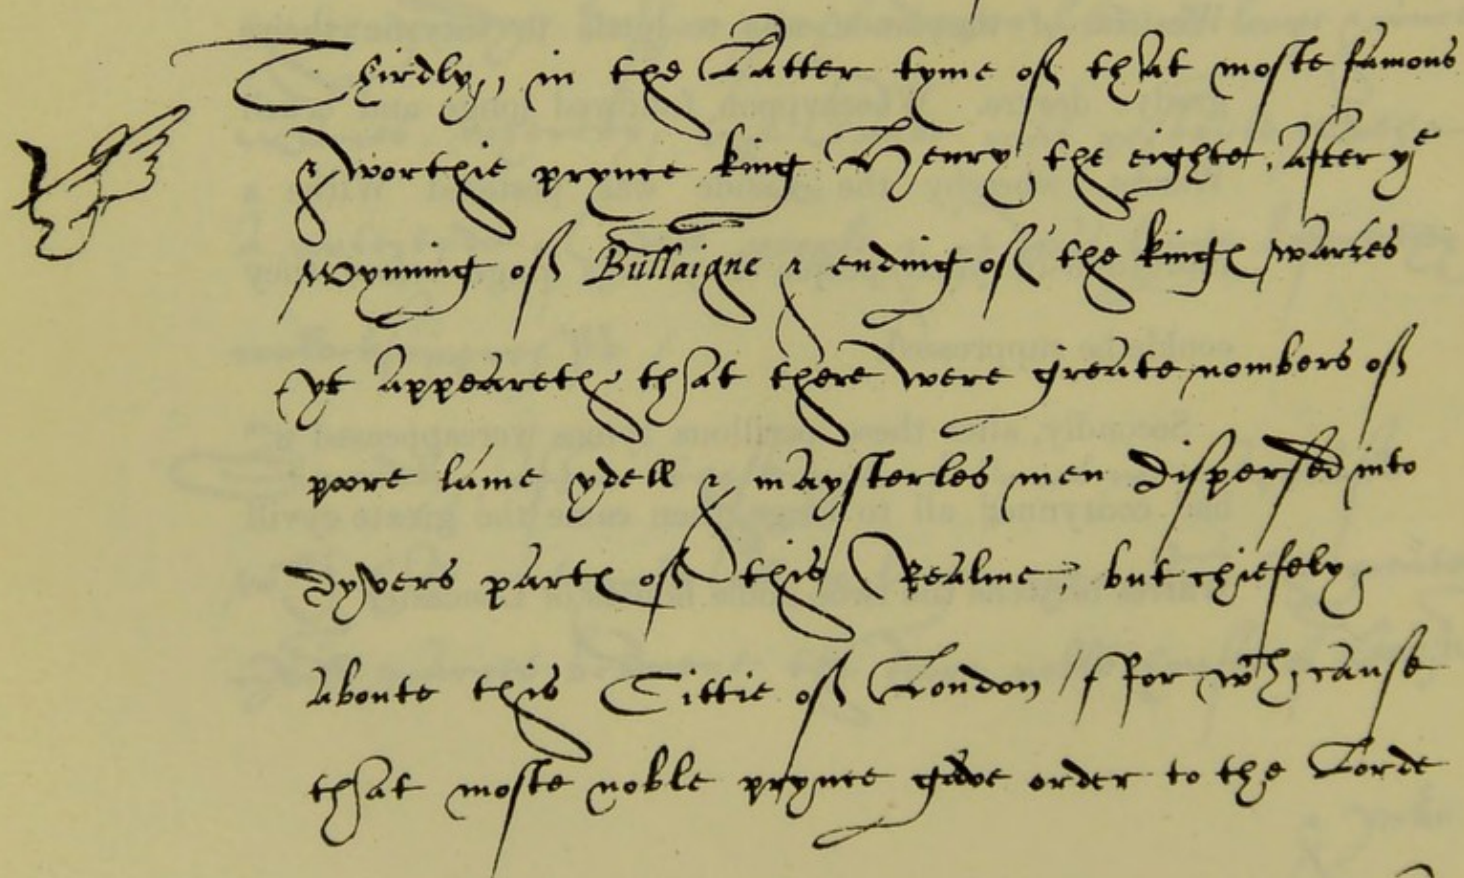 Thirdly, in the Latter tyme of that moste famous
& worthie prynce king Henry the eighte, After yᵉ
wynning of Bullaigne & ending of the kingꝭ warres
yt appeareth that there were greate nombers of
poore lame ydell & maysterles men dispersed into
dyvers partꝭ of this Realme, but chiefely,
aboute this Cittie of London / ffor wᶜʰ, cause
that moste noble prynce gave order to the Lorde